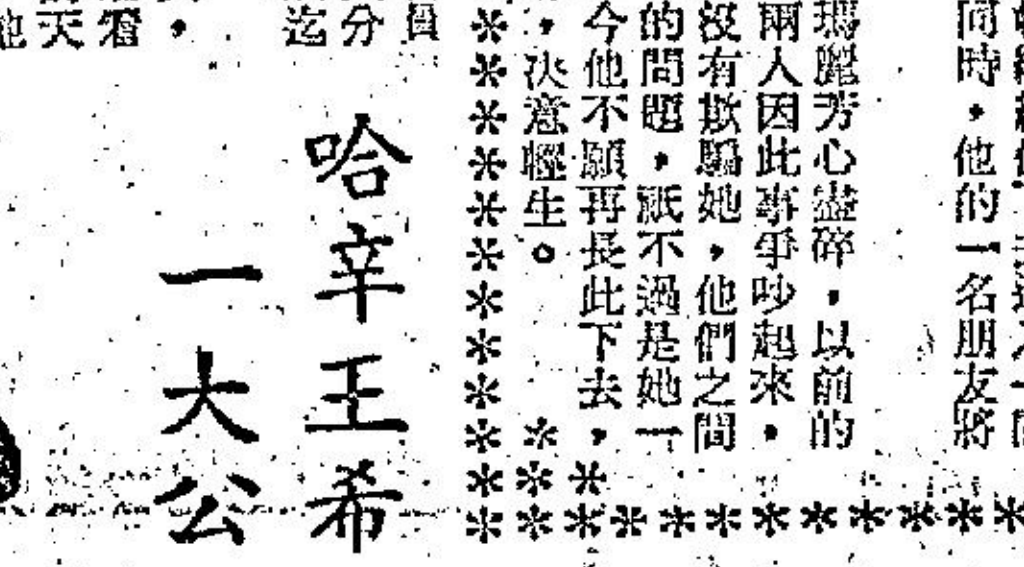 同時，他的一名朋友將
瑪麗芳心盡碎，以前的
兩人因此事爭吵起來，
沒有欺騙她，他們之間
的問題，祇不過是她一
今他不願再長此下去，
，決意輕生。
員
分
迄
哈辛王希
一大公
，
天
他